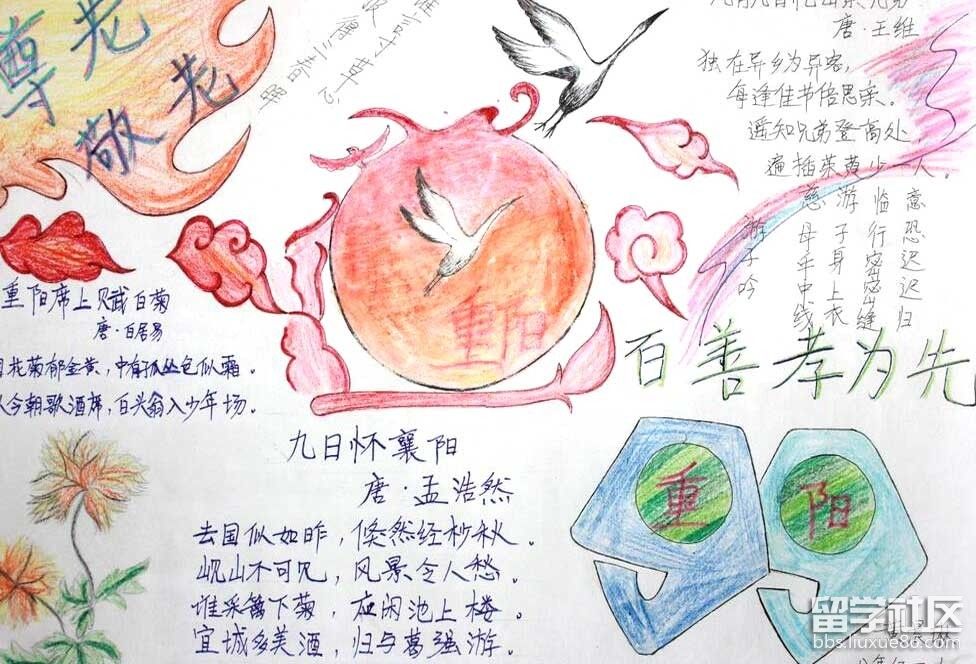 尊老
敬老
谁言寸草心
报得三春晖
九月九日忆山东兄弟
唐·王维
独在异乡为异客，
每逢佳节倍思亲。
遥知兄弟登高处，
遍插茱萸少一人。
游子吟
慈母手中线
游子身上衣
临行密密缝
意恐迟迟归
重阳
百善孝为先
重阳席上赋白菊
唐·白居易
花菊郁金黄，中有孤丛色似霜。
今朝歌酒席，白头翁入少年场。
九日怀襄阳
唐·孟浩然
去国似如昨，倏然经杪秋。
岘山不可见，风景令人愁。
谁采篱下菊，应闲池上楼。
宜城多美酒，归与葛强游。
重
阳
留学社区
bbs.liuxue86.com